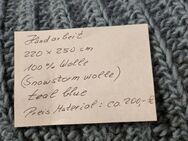 Handarbeit
220 x 250 cm
100 % Wolle
(Snowstorm wolle)
teal blue
Preis Material: ca. 200,- €